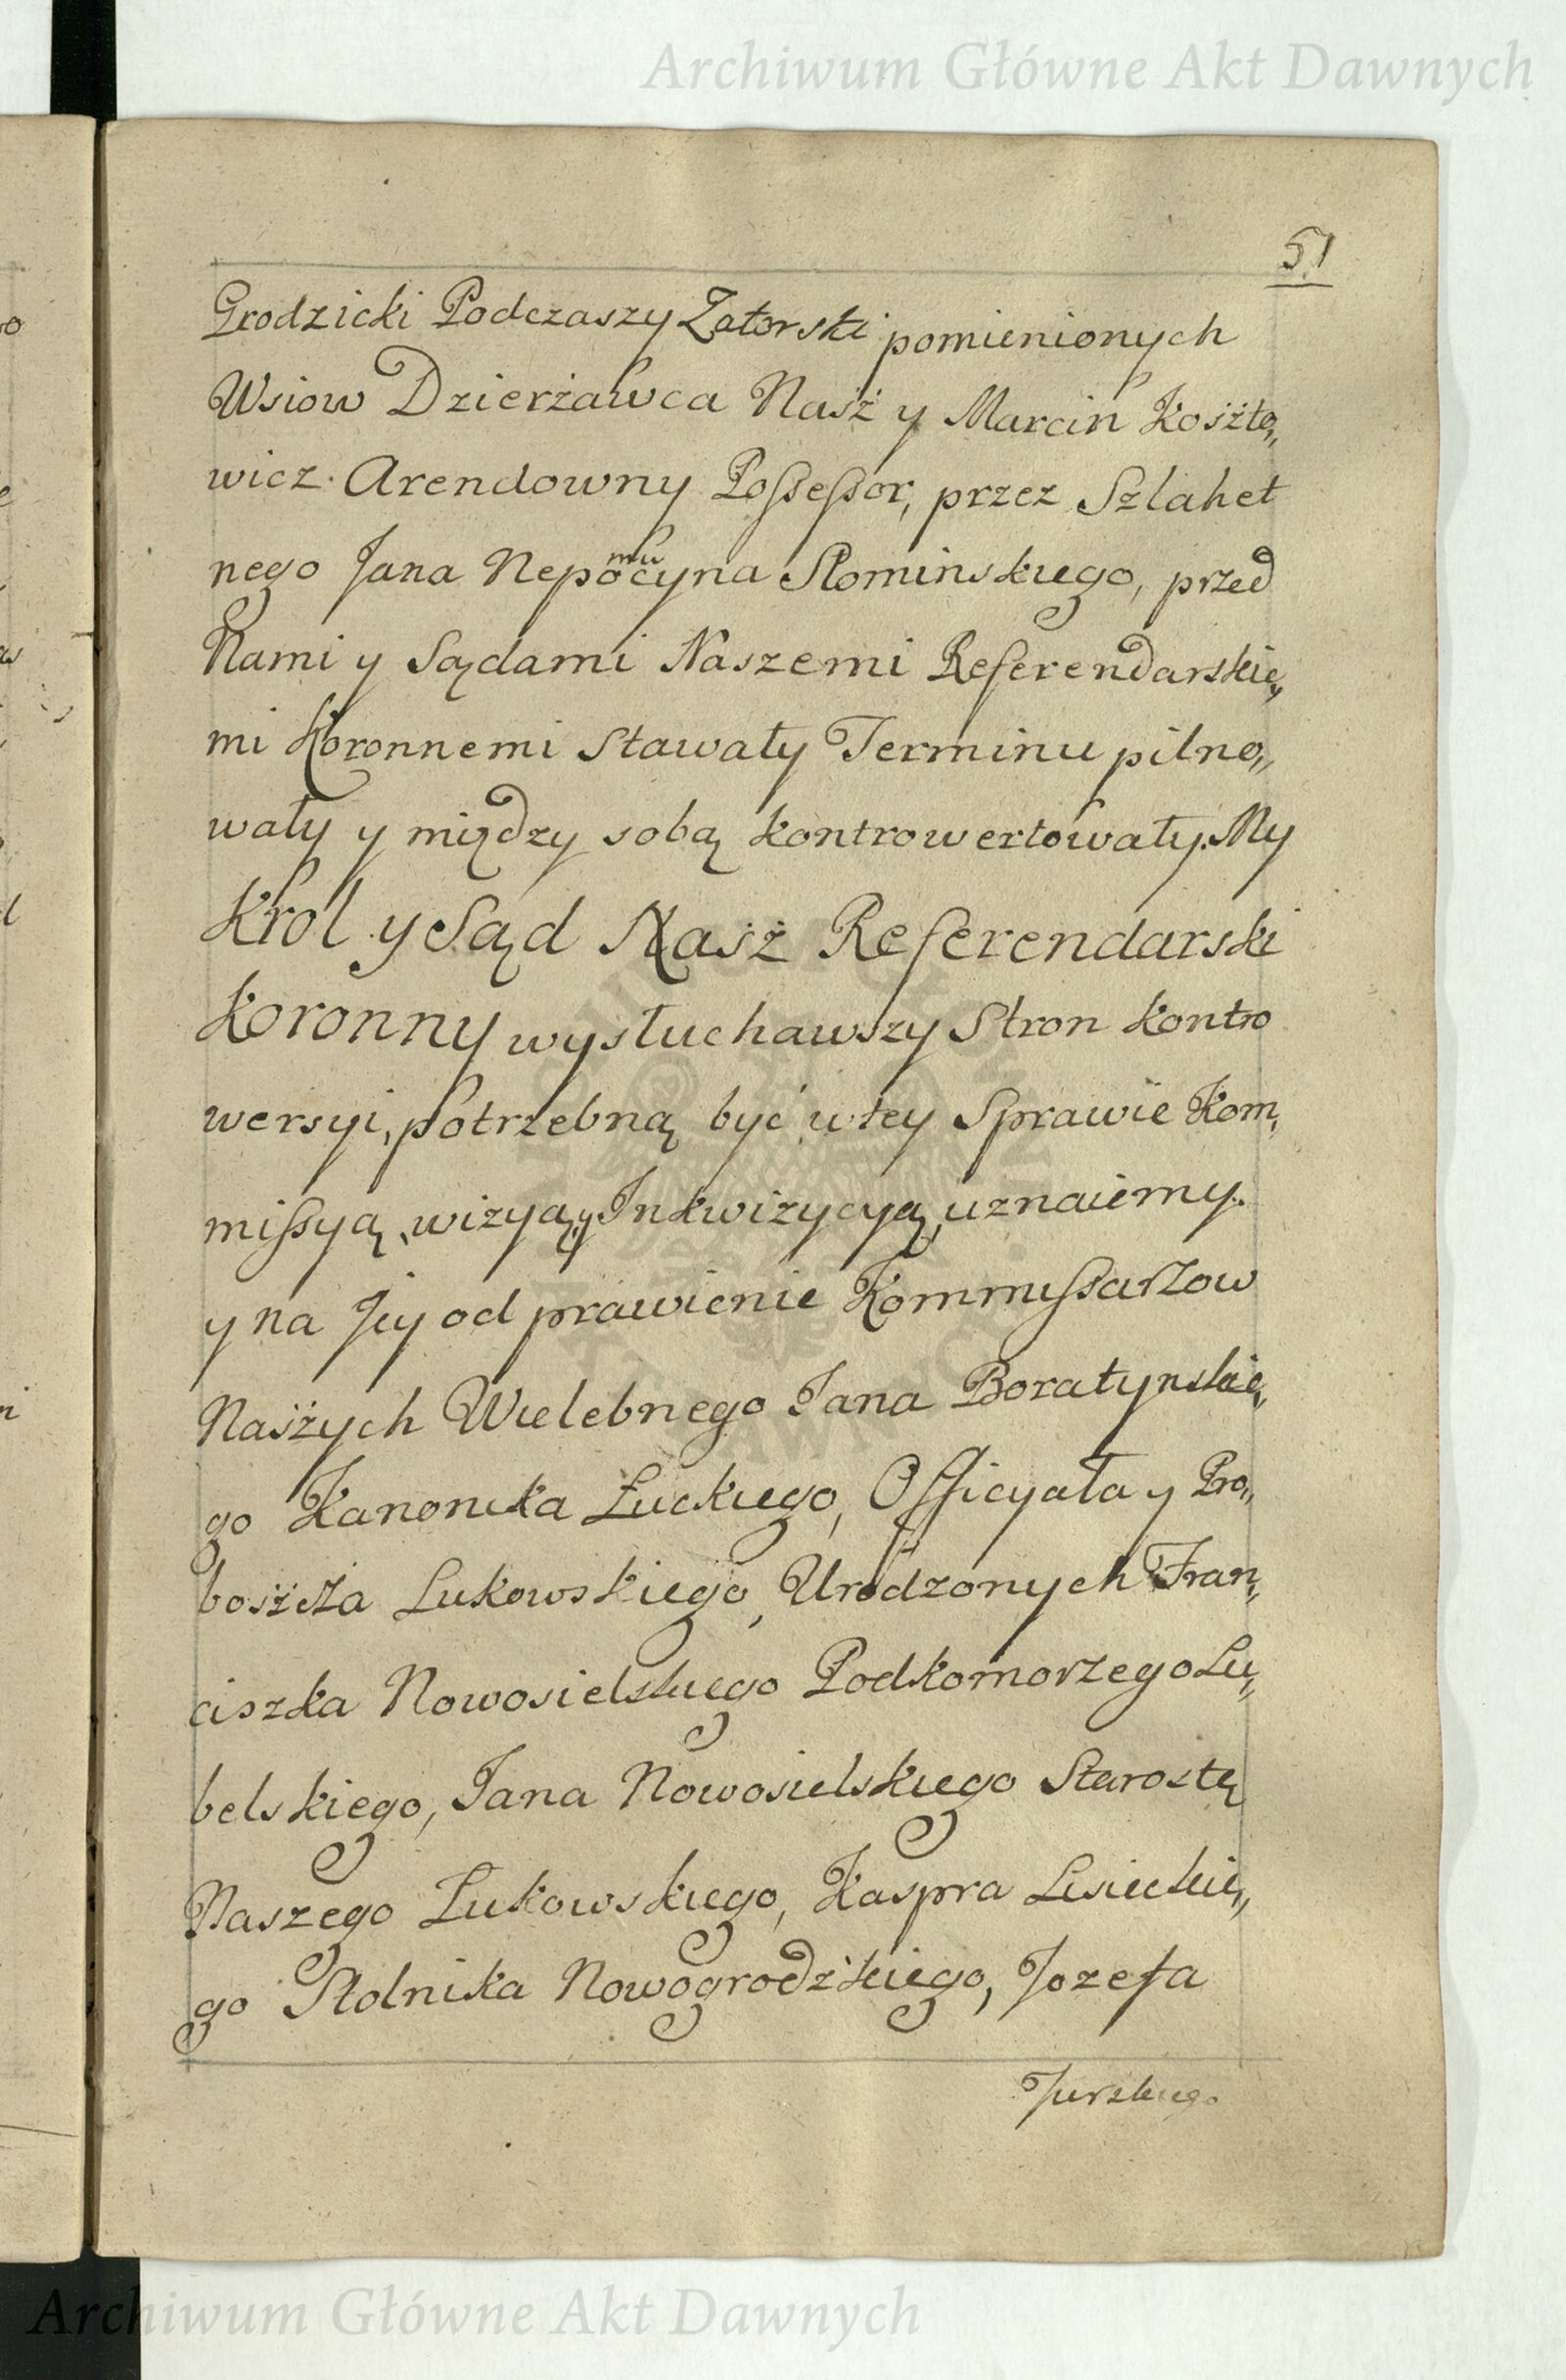 Archiwum Główne Akt Dawnych
51
Grodzicki Podczaszy Zatorski pomienionych
Wsiow Dzierżawca Nasż y Marcin Kosżto„
wicz Arendowny Possessor, przez Szlahet
nego Jana Nepomucyna Słominskiego, przed
Nami y Sądami Naszemi Referendarskie„
mi Koronnemi stawały Terminu pilno„
wały y między sobą kontrowertowały. My
Krol y Sąd Nasż Referendarski
Koronny wysłuchawszy Stron kontro
wersyi, potrzebną być w tey Sprawie Kom„
missyą, wizyą, y Inkwizycyą, uznaiemy.
y na Jey od prawienie Kommissarzow
Nasżych Wielebnego Jana Boratynskie„
go Kanonika Łuckiego, Officyała y Pro„
bosżcza Łukowskiego, Urodzonych Fran„
ciszka Nowosielskiego Podkomorzego Lu„
belskiego, Jana Nowosielskiego Starostę
Naszego Łukowskiego, Kaspra Lisieckie„
go Stolnika Nowogrodzkiego, Jozefa
Jurskiego
Archiwum Główne Akt Dawnych